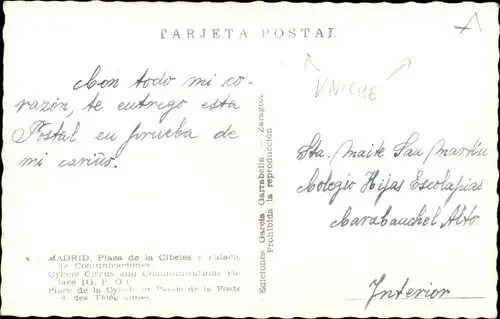 TARJETA POSTAL
KNICHE
Con todo mi co-
razón, te entrego esta
Postal en prueba de
mi cariño.
Ediciones García Garrabella — Zaragoza
Prohibida la reproducción
Sta. Maite San Martín
Colegio Hijas Escolapias
Carabauchel Alto
Interior
MADRID. Plaza de la Cibeles y Palacio
de Comunicaciones
Cybele Circus and Communications Pa-
lace (G. P. O.)
Place de la Cybel et de la Poste
et des Télégrammes